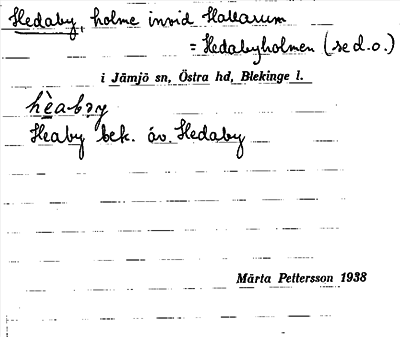 Hedaby, holme invid Hallarum
= Hedabyholmen (se d.o.)
i Jämjö sn, Östra hd, Blekinge l.
Heaby bek. äv. Hedaby
Märta Pettersson 1938